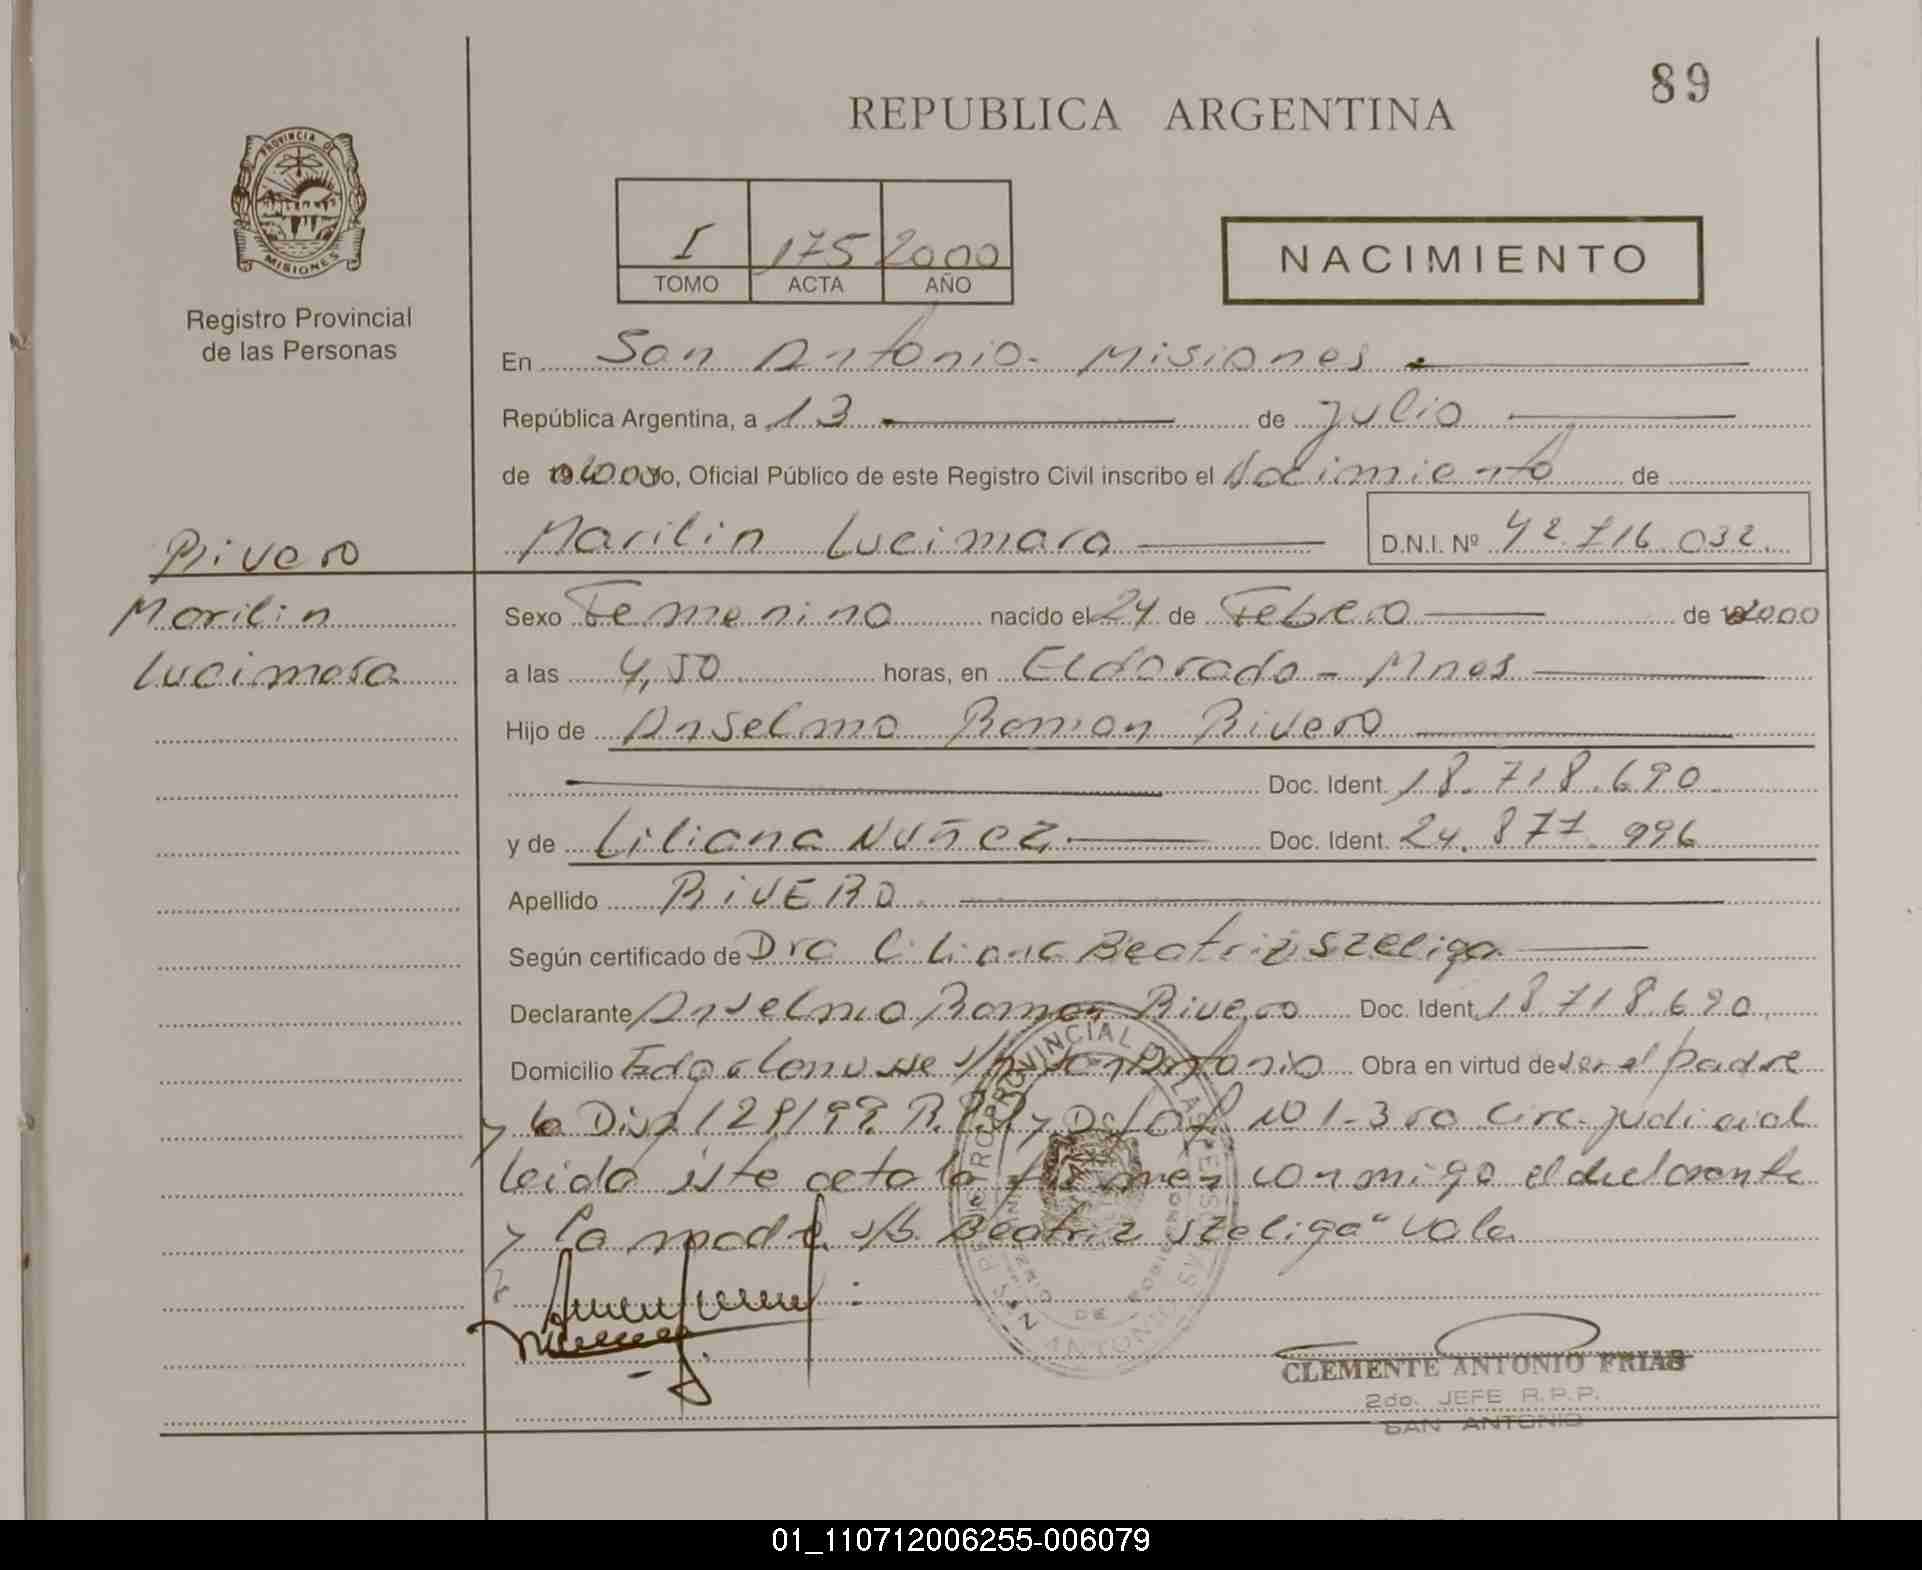 89
REPUBLICA ARGENTINA
PROVINCIA DE
MISIONES
Registro Provincial
de las Personas
I 175 2000
TOMO ACTA AÑO
NACIMIENTO
En San Antonio - Misiones
República Argentina, a 13 de julio
de 2000 yo, Oficial Público de este Registro Civil inscribo el Nacimiento de
Marilin Lucimara D.N.I. Nº 42.716.032
Rivero
Marilin
Lucimara
Sexo Femenino nacido el 24 de Febrero de 2000
a las 4,50 horas, en Eldorado - Mnes
Hijo de Anselmo Ramon Rivero
Doc. Ident. 18.718.690
y de Liliana Nuñez Doc. Ident. 24.877.996
Apellido RIVERO
Según certificado de Dra Liliana Beatriz Szeliga
Declarante Anselmo Ramon Rivero Doc. Ident. 18.718.690
Domicilio s/n San Antonio Obra en virtud de ser el padre
y la Disp 128/99 R.P.P y Def Of Nº 1 - 3ra Circ. judicial
leida este acta la firman conmigo el declarante
y la madre s/b Beatriz Szeliga" vale
REGISTRO PROVINCIAL DE LAS PERSONAS
SAN ANTONIO
CLEMENTE ANTONIO FRIAS
2do. JEFE R.P.P.
SAN ANTONIO
01_110712006255-006079